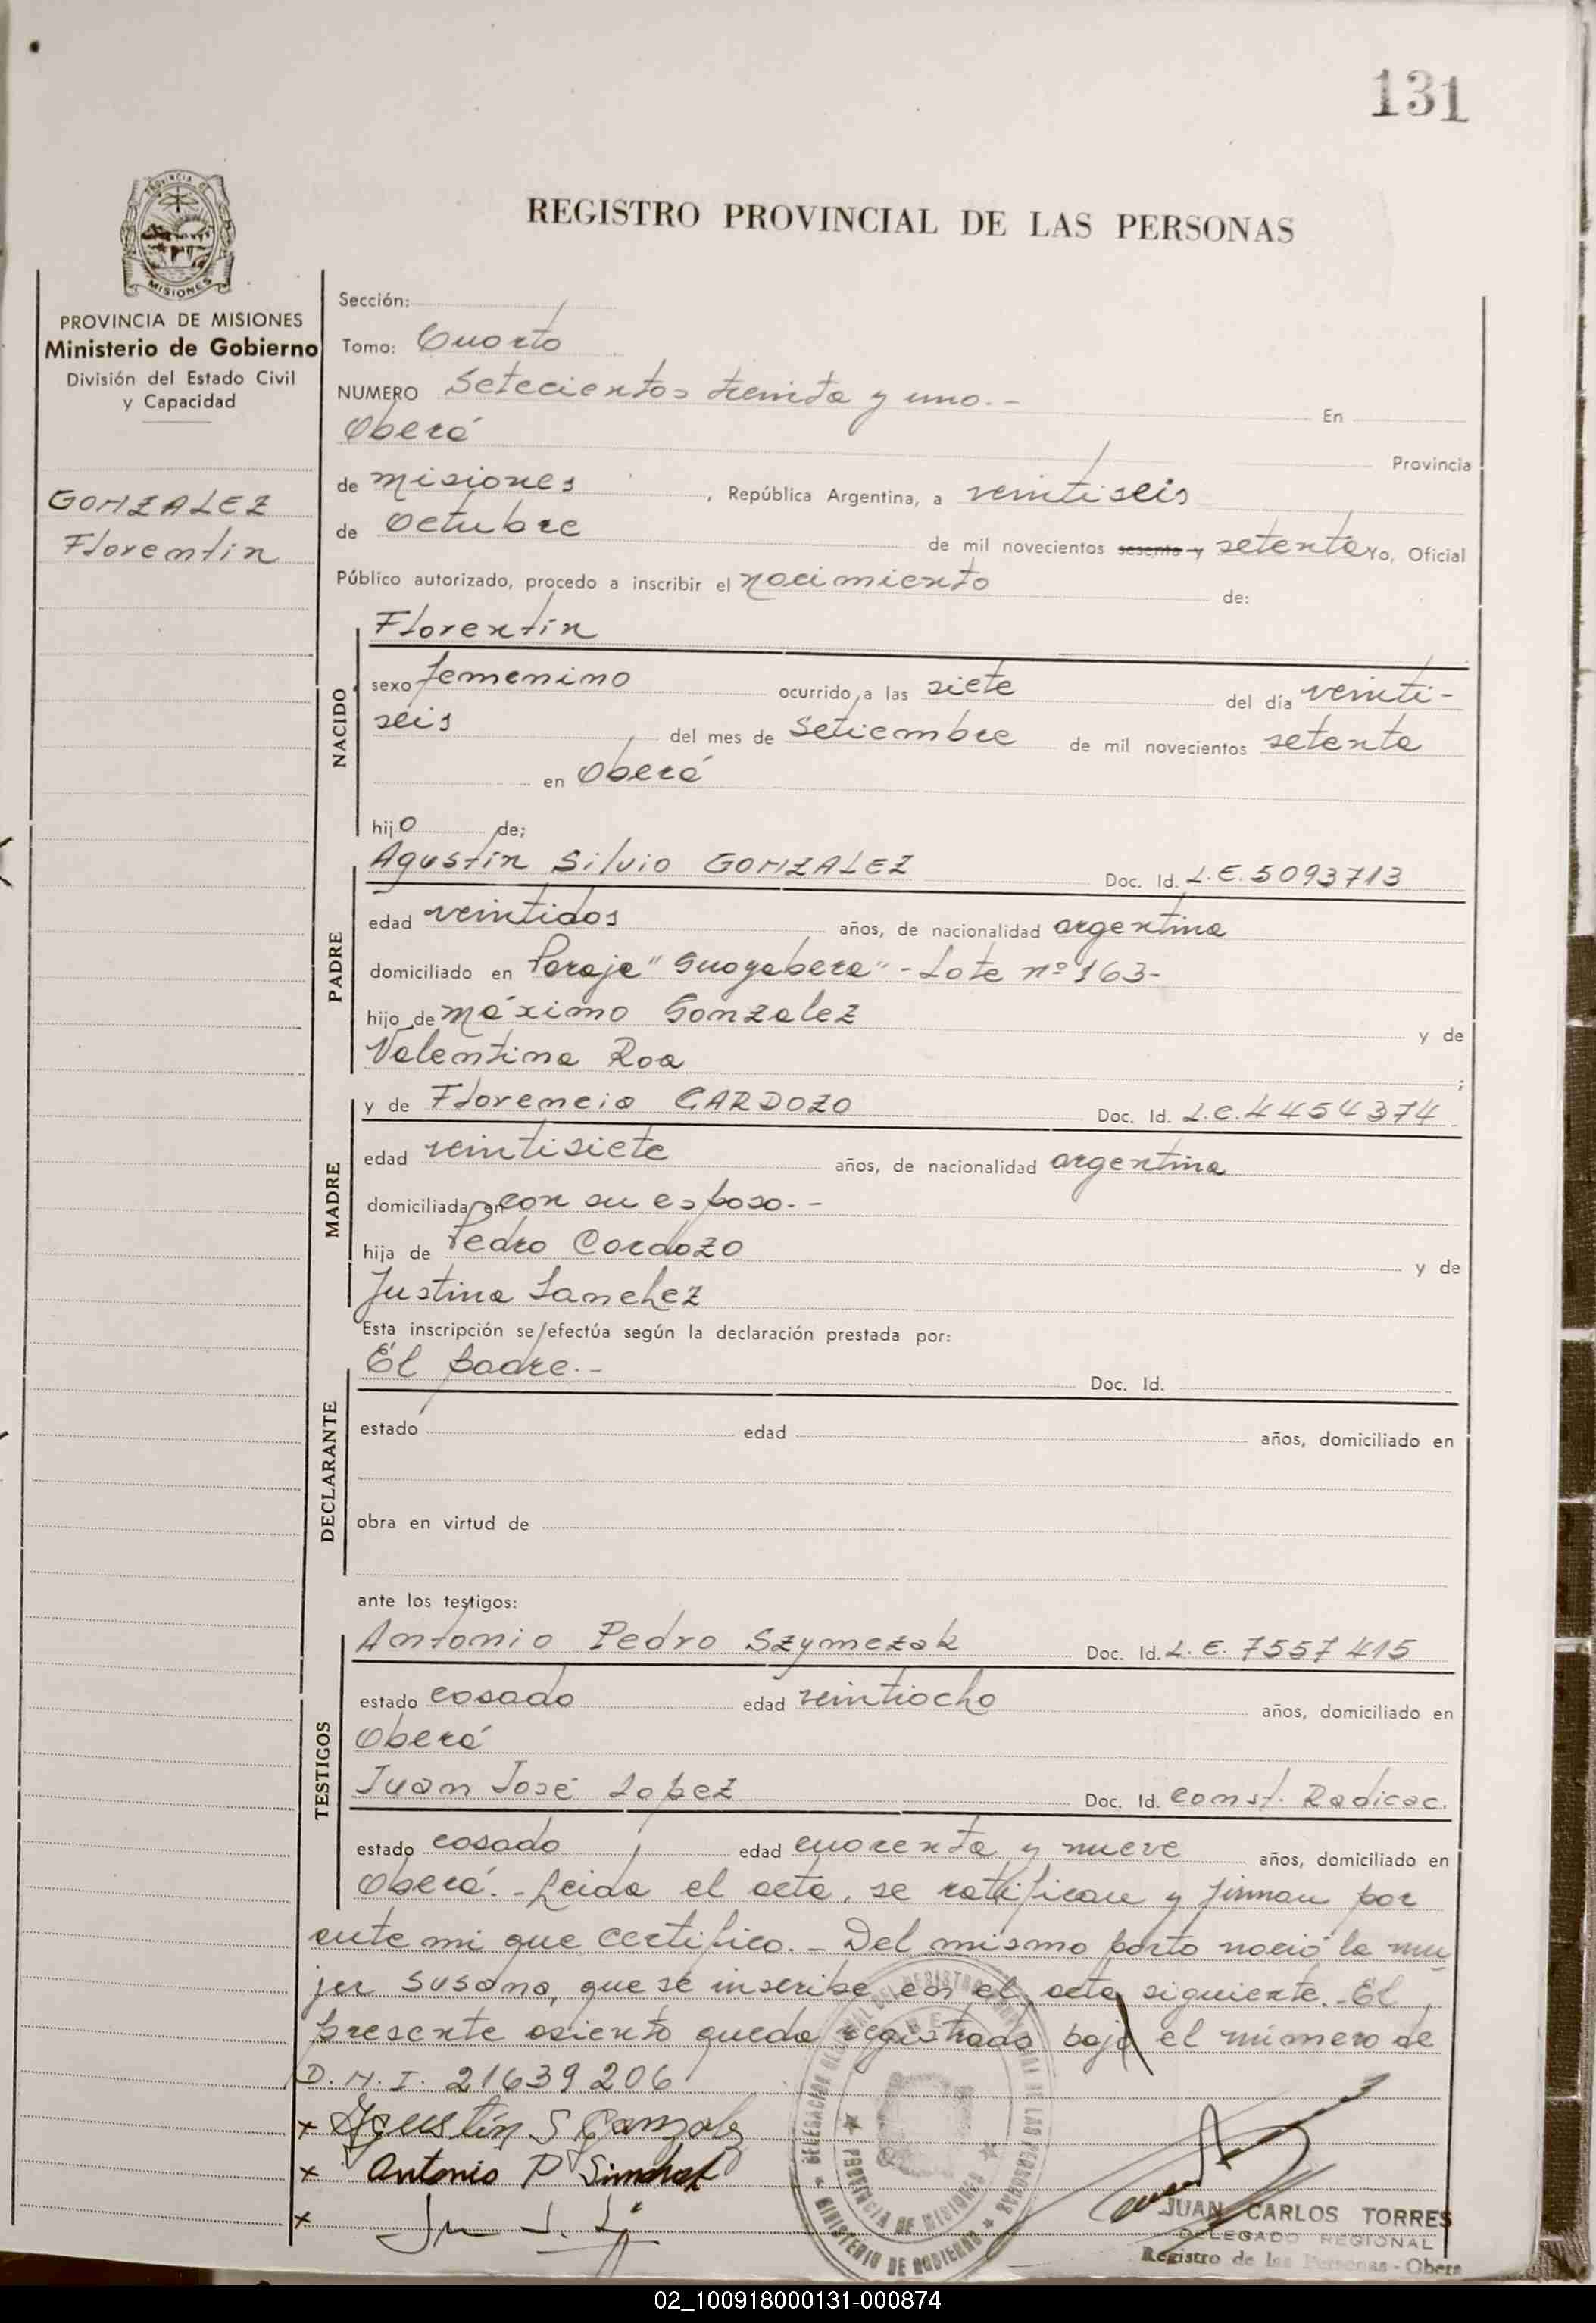 131
PROVINCIA DE
MISIONES
REGISTRO PROVINCIAL DE LAS PERSONAS
PROVINCIA DE MISIONES
Ministerio de Gobierno
División del Estado Civil
y Capacidad
GONZALEZ
Florentin
Sección:
Tomo: Cuarto
NUMERO Setecientos treinta y uno.- En
Oberá Provincia
de Misiones, República Argentina, a veintiseis
de Octubre de mil novecientos sesenta y setenta Yo, Oficial
Público autorizado, procedo a inscribir el nacimiento de:
NACIDO
Florentín
sexo femenino ocurrido a las siete del día veinti-
seis del mes de Setiembre de mil novecientos setenta
en Oberá
hijo de:
PADRE
Agustín Silvio GONZALEZ Doc. Id. L.E. 5093713
edad veintidos años, de nacionalidad argentina
domiciliado en Paraje "Guayabera" - Lote nº 163-
hijo de Máximo Gonzalez y de
Valentina Roa ;
MADRE
y de Florencia CARDOZO Doc. Id. L.C. 4454374
edad veintisiete años, de nacionalidad argentina
domiciliada en con su esposo.-
hija de Pedro Cardozo y de
Justina Sanchez
Esta inscripción se efectúa según la declaración prestada por:
DECLARANTE
El padre.- Doc. Id.
estado edad años, domiciliado en
obra en virtud de
ante los testigos:
TESTIGOS
Antonio Pedro Szymczak Doc. Id. L.E. 7557415
estado casado edad veintiocho años, domiciliado en
Oberá
Juan José Lopez Doc. Id. Const. Radicac.
estado casado edad cuarenta y nueve años, domiciliado en
Oberá.- Leida el acta, se ratifican y firman por
ante mi que certifico.- Del mismo parto nació la mu
jer Susana, que se inscribe en el acta siguiente.- El
presente asiento queda registrado bajo el número de
D.N.I. 21639206
x Agustín S Gonzalez
x Antonio P
x
PROVINCIA DE MISIONES
MINISTERIO DE GOBIERNO
JUAN CARLOS TORRES
DELEGADO REGIONAL
Registro de las Personas - Obera
02_100918000131-000874